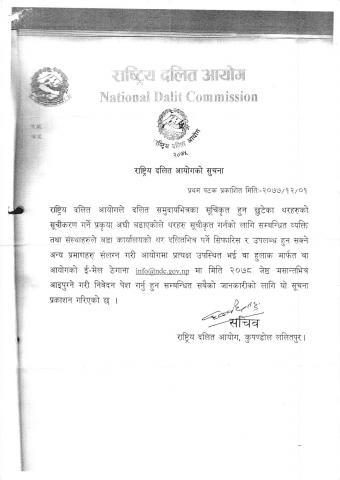 राष्ट्रिय दलित आयोग
National Dalit Commission
राष्ट्रिय दलित आयोग
२०५८
राष्ट्रिय दलित आयोगको सुचना
प्रथम पटक प्रकाशित मिति:-२०७७/१२/०१
राष्ट्रिय दलित आयोगले दलित समुदायभित्रका सूचिकृत हुन छुटेका थरहरुको
सूचीकरण गर्ने प्रकृया अघी बढाएकोले थरहरु सूचीकृत गर्नको लागि सम्बन्धित व्यक्ति
तथा संस्थाहरुले वडा कार्यालयको थर दलितभित्र पर्ने सिफारिस र उपलब्ध हुन सक्ने
अन्य प्रमाणहरु संलग्न गरी आयोगमा प्रत्यक्ष उपस्थित भई वा हुलाक मार्फत वा
आयोगको ई-मेल ठेगाना info@ndc.gov.np मा मिति २०७८ जेष्ठ मसान्तभित्र
आइपुग्ने गरी निवेदन पेश गर्नु हुन सम्बन्धित सबैको जानकारीको लागि यो सूचना
प्रकाशन गरिएको छ ।
सचिव
राष्ट्रिय दलित आयोग, कुपण्डोल ललितपुर।